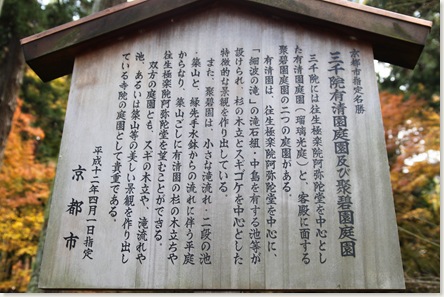 京都市指定名勝
三千院有清園庭園及び聚碧園庭園
三千院には往生極楽院阿弥陀堂を中心とし
た有清園庭園（瑠璃光庭）と、客殿に面する
聚碧園庭園の二つの庭園がある。
有清園は、往生極楽院阿弥陀堂を中心に、
「細波の滝」の滝石組、中島を有する池等が
設けられ、杉の木立とスギゴケを中心とした
特徴的な景観を作り出している。
また、聚碧園は、小さな滝流れ、二段の池
、築山と、縁先手水鉢からの流れに伴う平庭
からなり、築山ごしに有清園の杉の木立ちや
往生極楽院阿弥陀堂を望むことができる。
双方の庭園とも、スギの木立や、滝流れや
池、あるいは築山等の美しい景観を作り出し
ている寺院の庭園として貴重である。
平成十二年四月一日指定
京都市